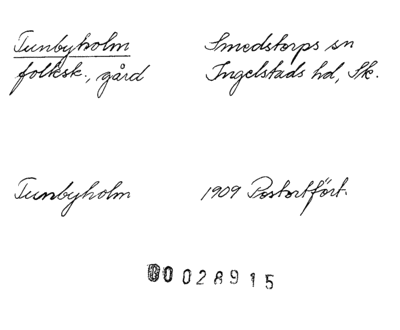 Tunbyholm Smedstorps sn
folksk., gård Ingelstads hd, Sk.
Tunbyholm 1909 Postortfört.
00028915